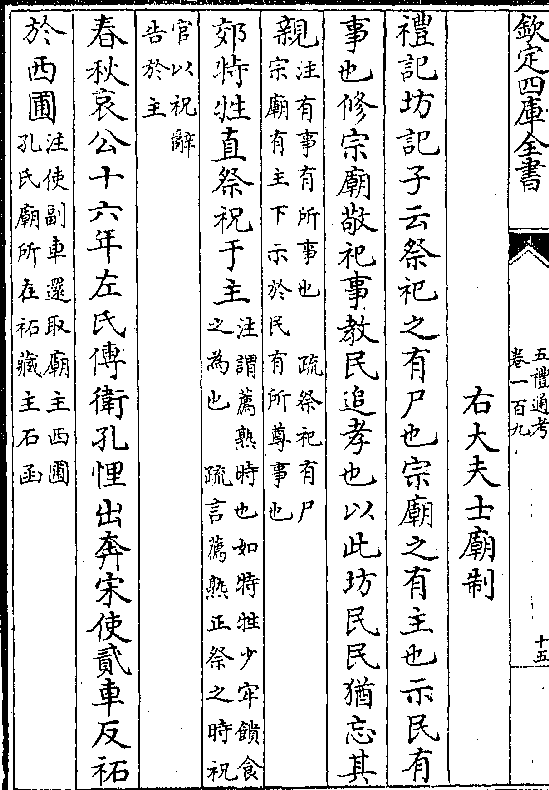 欽定四庫全書
五禮通考
卷一百九
十五
右大夫士廟制
禮記坊記子云祭祀之有尸也宗廟之有主也示民有
事也修宗廟敬祀事教民追孝也以此坊民民猶忘其
親注有事有所事也　疏祭祀有尸
宗廟有主下示於民有所尊事也
郊特牲直祭祝于主注謂薦熟時也如特牲少牢饋食
之為也　疏言薦熟正祭之時祝
官以祝辭
告於主
春秋哀公十六年左氏傳衛孔悝出奔宋使貳車反祏
於西圃注使副車還取廟主西圃
孔氏廟所在祏藏主石函